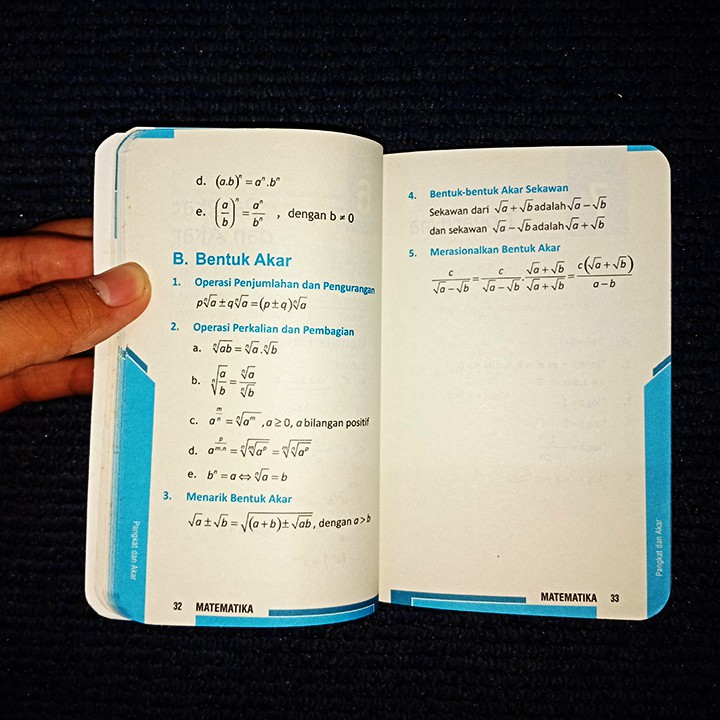 d. (a.b)ⁿ = aⁿ.bⁿ
e. (a/b)ⁿ = aⁿ/bⁿ , dengan b ≠ 0
B. Bentuk Akar
1. Operasi Penjumlahan dan Pengurangan
pⁿ√a ± qⁿ√a = (p ± q)ⁿ√a
2. Operasi Perkalian dan Pembagian
a. ⁿ√ab = ⁿ√a.ⁿ√b
b. ⁿ√(a/b) = ⁿ√a/ⁿ√b
c. a^(m/n) = ⁿ√(a^m) , a ≥ 0, a bilangan positif
d. a^(p/m.n) = ⁿ√(ᵐ√(a^p)) = ᵐ√(ⁿ√(a^p))
e. bⁿ = a ⇔ ⁿ√a = b
3. Menarik Bentuk Akar
√a ± √b = √((a+b) ± √ab) , dengan a > b
Pangkat dan Akar
32 MATEMATIKA
4. Bentuk-bentuk Akar Sekawan
Sekawan dari √a + √b adalah √a − √b
dan sekawan √a − √b adalah √a + √b
5. Merasionalkan Bentuk Akar
c/(√a − √b) = c/(√a − √b) . (√a + √b)/(√a + √b) = c(√a + √b)/(a − b)
Pangkat dan Akar
MATEMATIKA 33